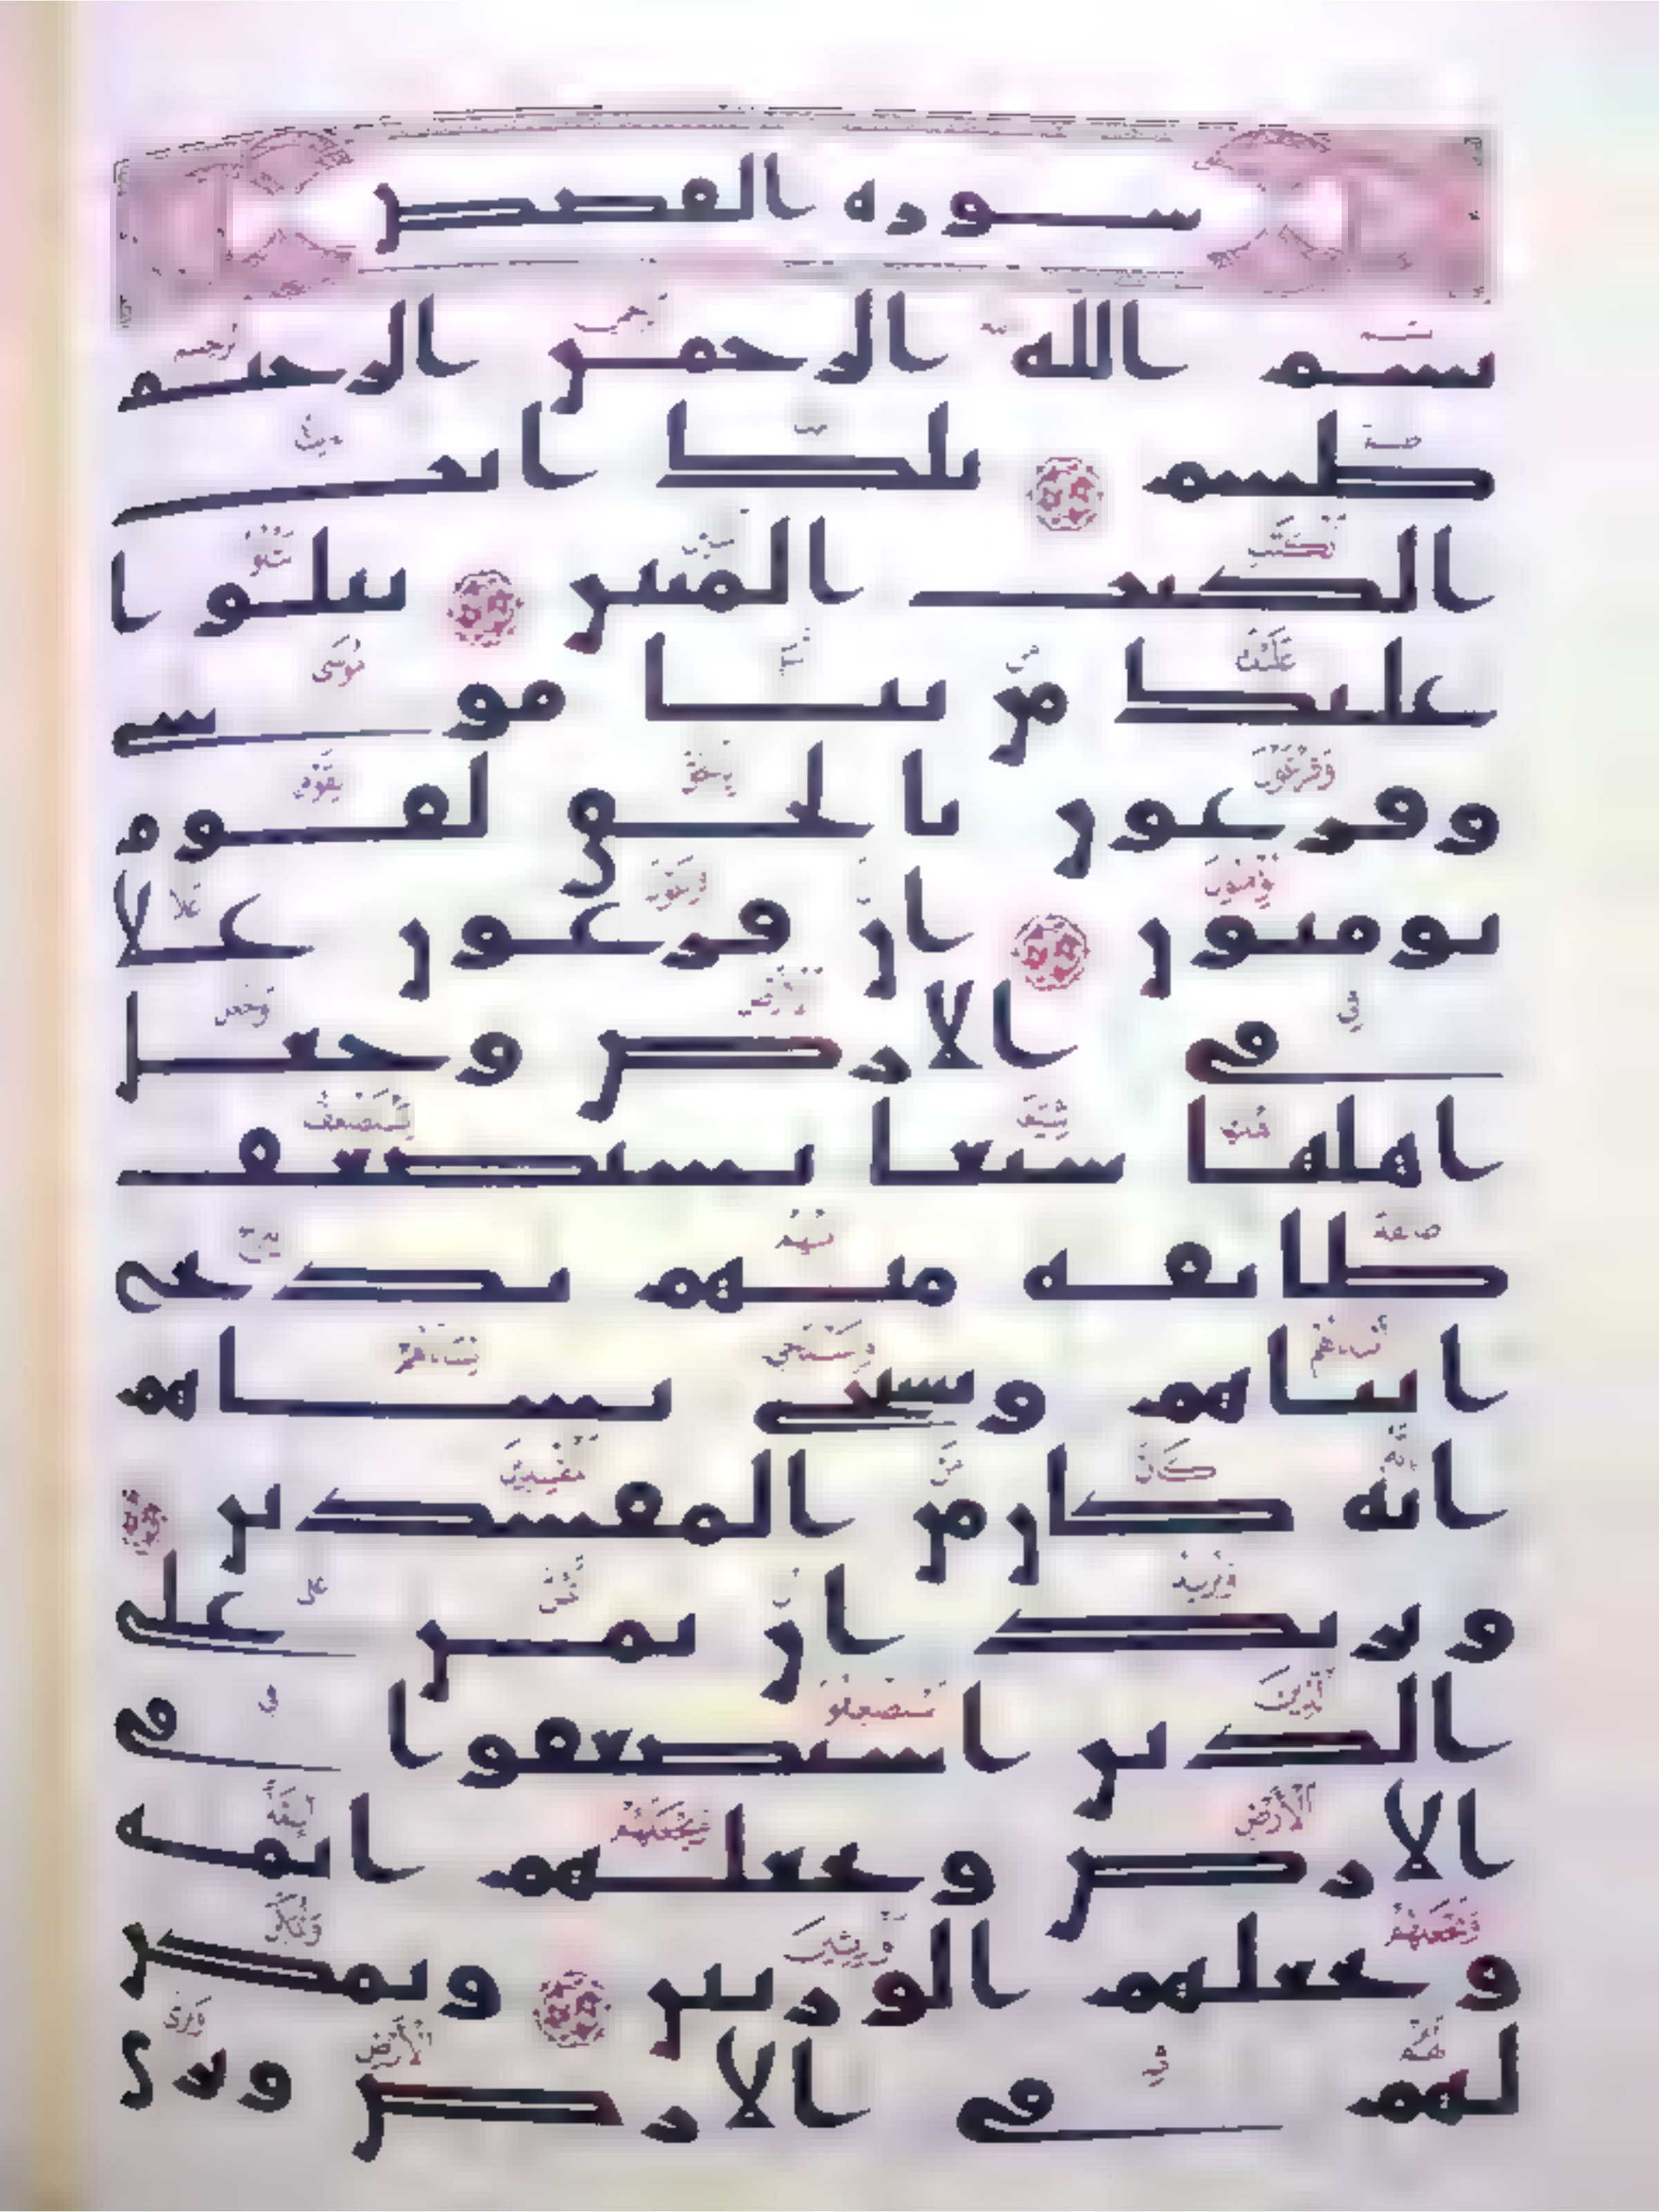 سوره القصص
بسم الله الرحمن الرحيم
طسم تلك ايت
الكتب المبين نتلوا
عليك من نبا موسى
وفرعون بالحق لقوم
يومنون ان فرعون علا
في الارض وجعل
اهلها شيعا يستضعف
طائفه منهم يذبح
ابناهم ويستحي نساهم
انه كان من المفسدين
ونريد ان نمن على
الذين استضعفوا في
الارض ونجعلهم ائمه
ونجعلهم الورثين ونمكن
لهم في الارض ونرى